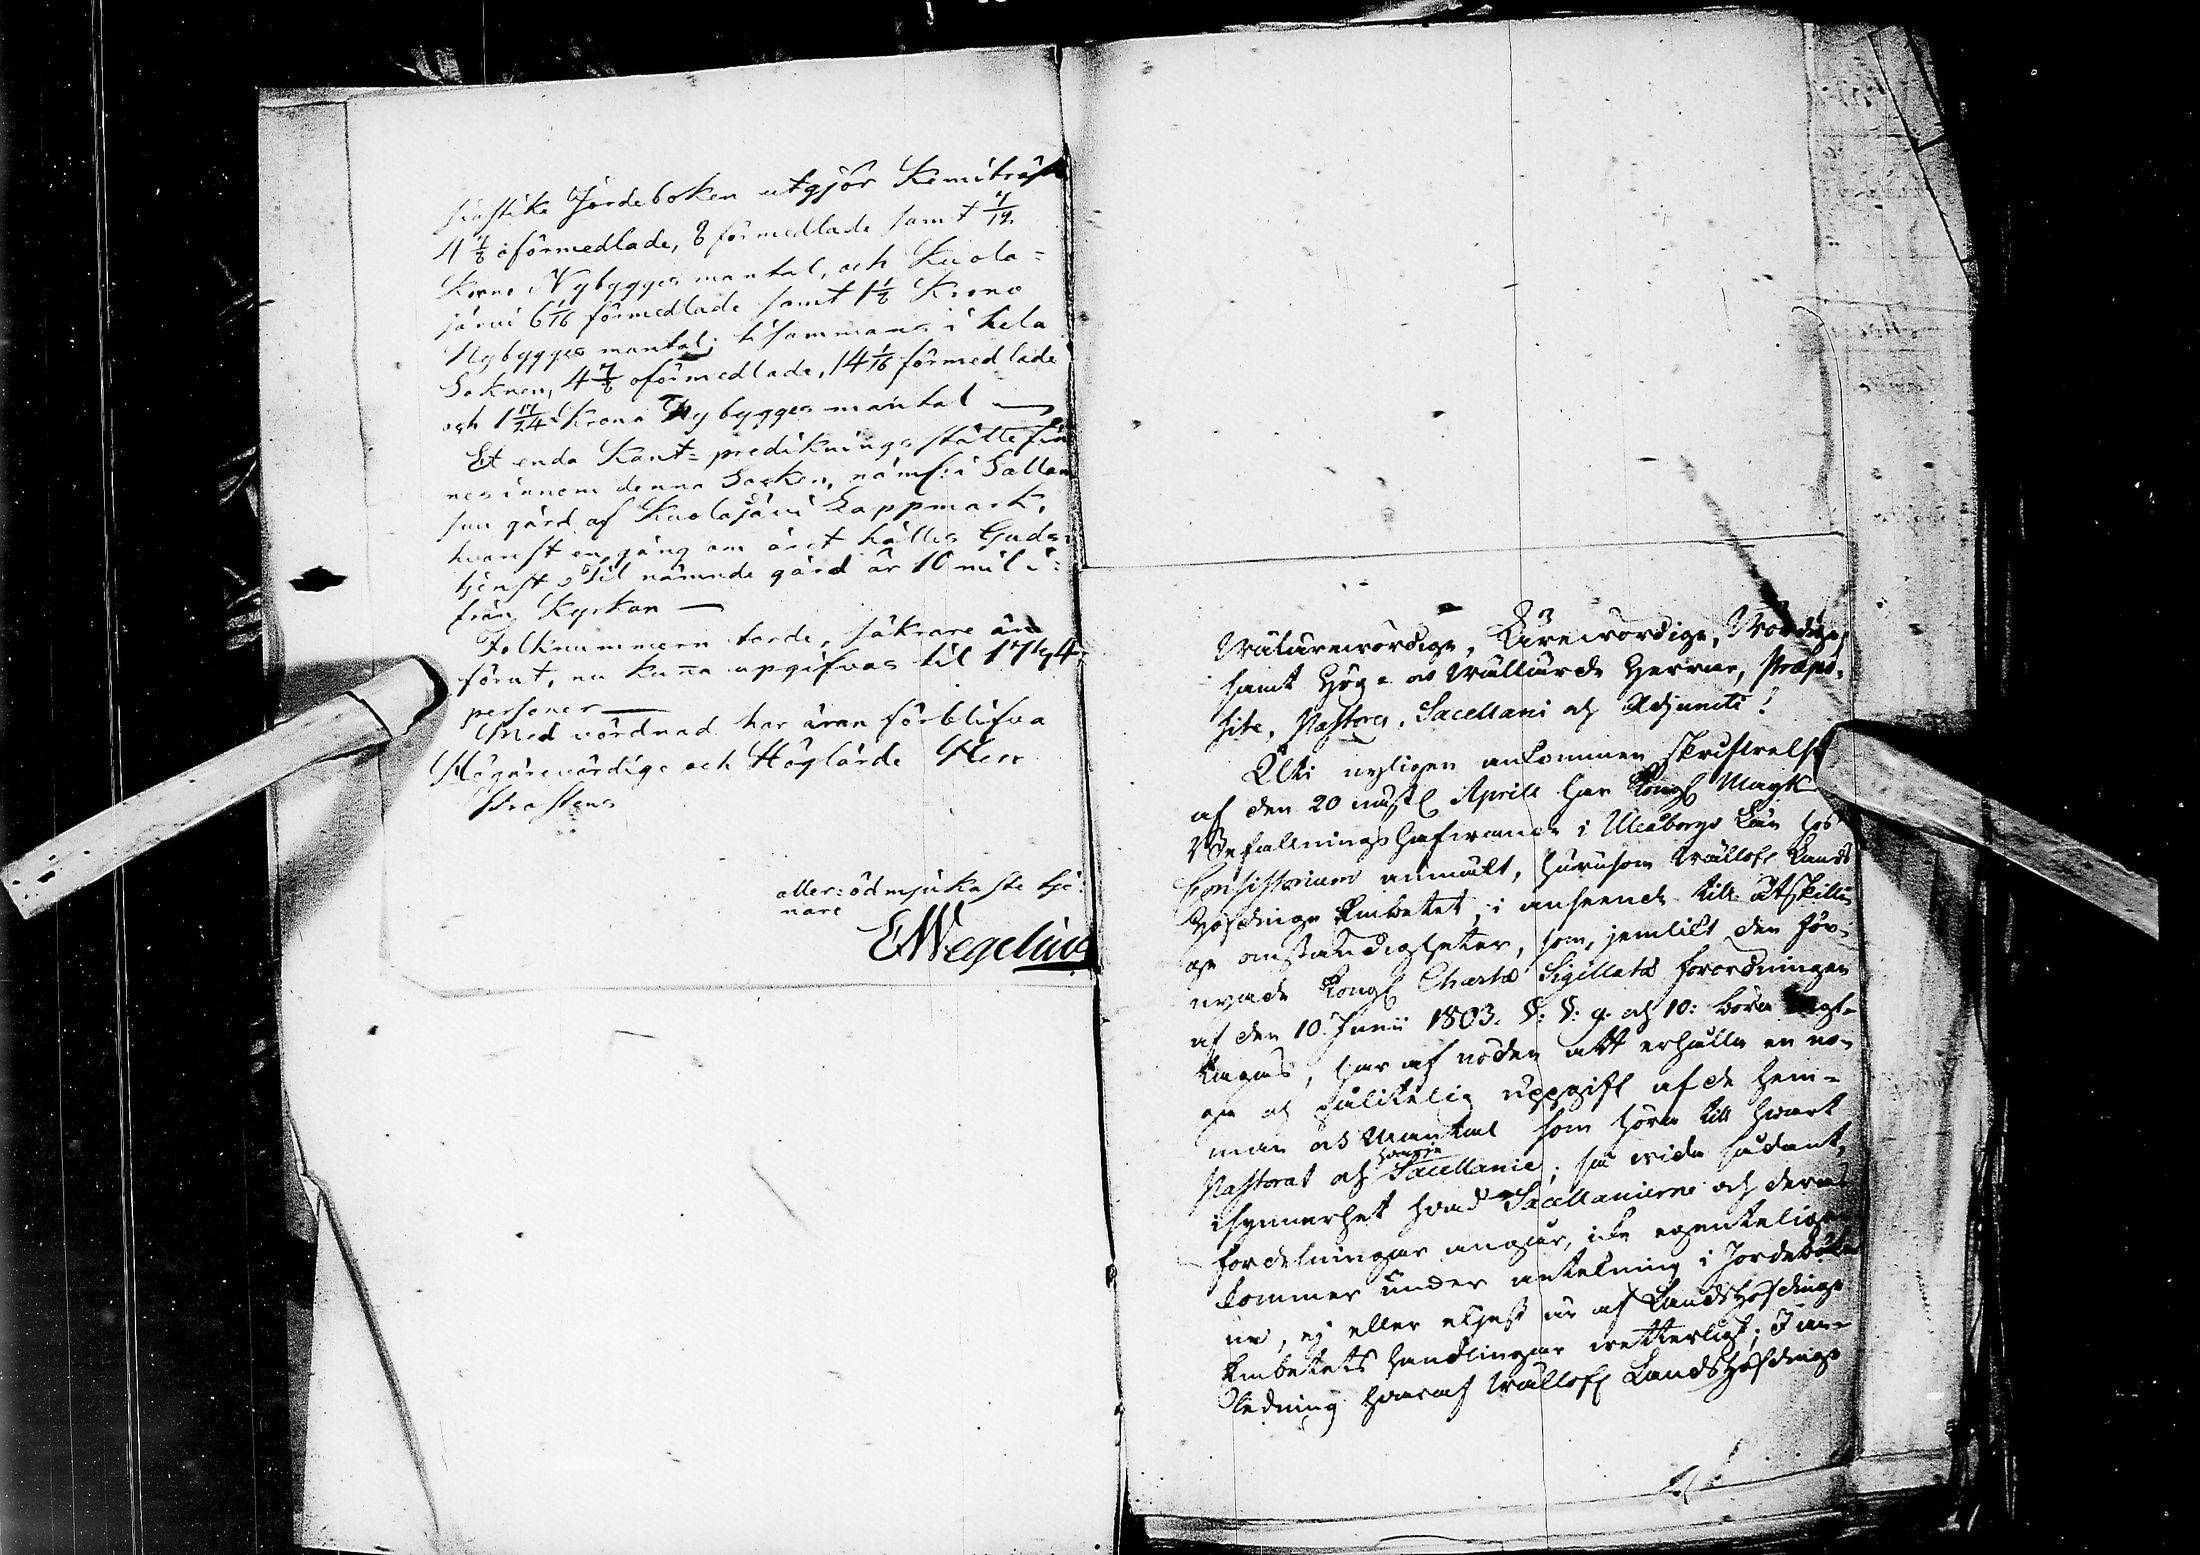 siastike Jordeboken utgjör Kemiträsk
4 7/8 oförmedlade, 8 förmedlade samt 7/12
Krono Nybygges mantal, och Kuola-
järvi 6 1/16 förmedlade samt 1 1/8 Krono
Nybygges mantal; tilsammans i hela
Soknen, 4 7/8 oförmedlade, 14 1/16 förmedlade
och 1 17/24 Krono Nybygges mantal —
Et enda Kant-predikningsställe fin
nes innom denna Socken, näml: i Sallan
suu gård af Kuolajärvi Lappmark,
hvarest en gång om året hålles Guds-
tjenst, Til nämnde gård är 10 mil i-
från Kyrkan —
Folknummern torde, säkrare än
förut, nu kunna upgifvas til 1794
personer —
Med vördnad har äran förblifva
Högärevördige och Höglärde Herr
Prostens
aller-ödmjukaste tje-
nare
EWegelius
Wälärevördige, Lärevördige, Wördige,
samt Hög- och Wällärde Herrar, Præpo-
siti, Pastores, Sacellani och Adjuncti!
Uti nyligen ankommen skrifvelse
af den 20 nästl Aprill har Kongl Mayts
Befallningshafwande i Uleåborgs Län hos
Consistorium anmält, hurusom Wällofl Lands
Höfdinge Embetet, i anseende till åtskilli-
ge omständigheter, som, jemlikt den för-
nyade Kongl Chartæ Sigillatæ förordningen
af den 10. Junii 1803. §. §: 9. och 10: böra iagt-
tagas, har af nöden att erhålla en no-
ga och pålitelig uppgift af de Hem-
man och Mantal som höra till hwart
Pastorat och hwarje Sacellanie; så wida sådant,
isynnerhet hwad Sacellanierne och deras
fördelningar angår, icke egenteligen
kommer under anteckning i Jordeböcker
ne, ej eller eljest är af Landshöfdinge
Embetets handlingar wetterligt; I an-
ledning hwaraf Wällofl Landshöfdinge